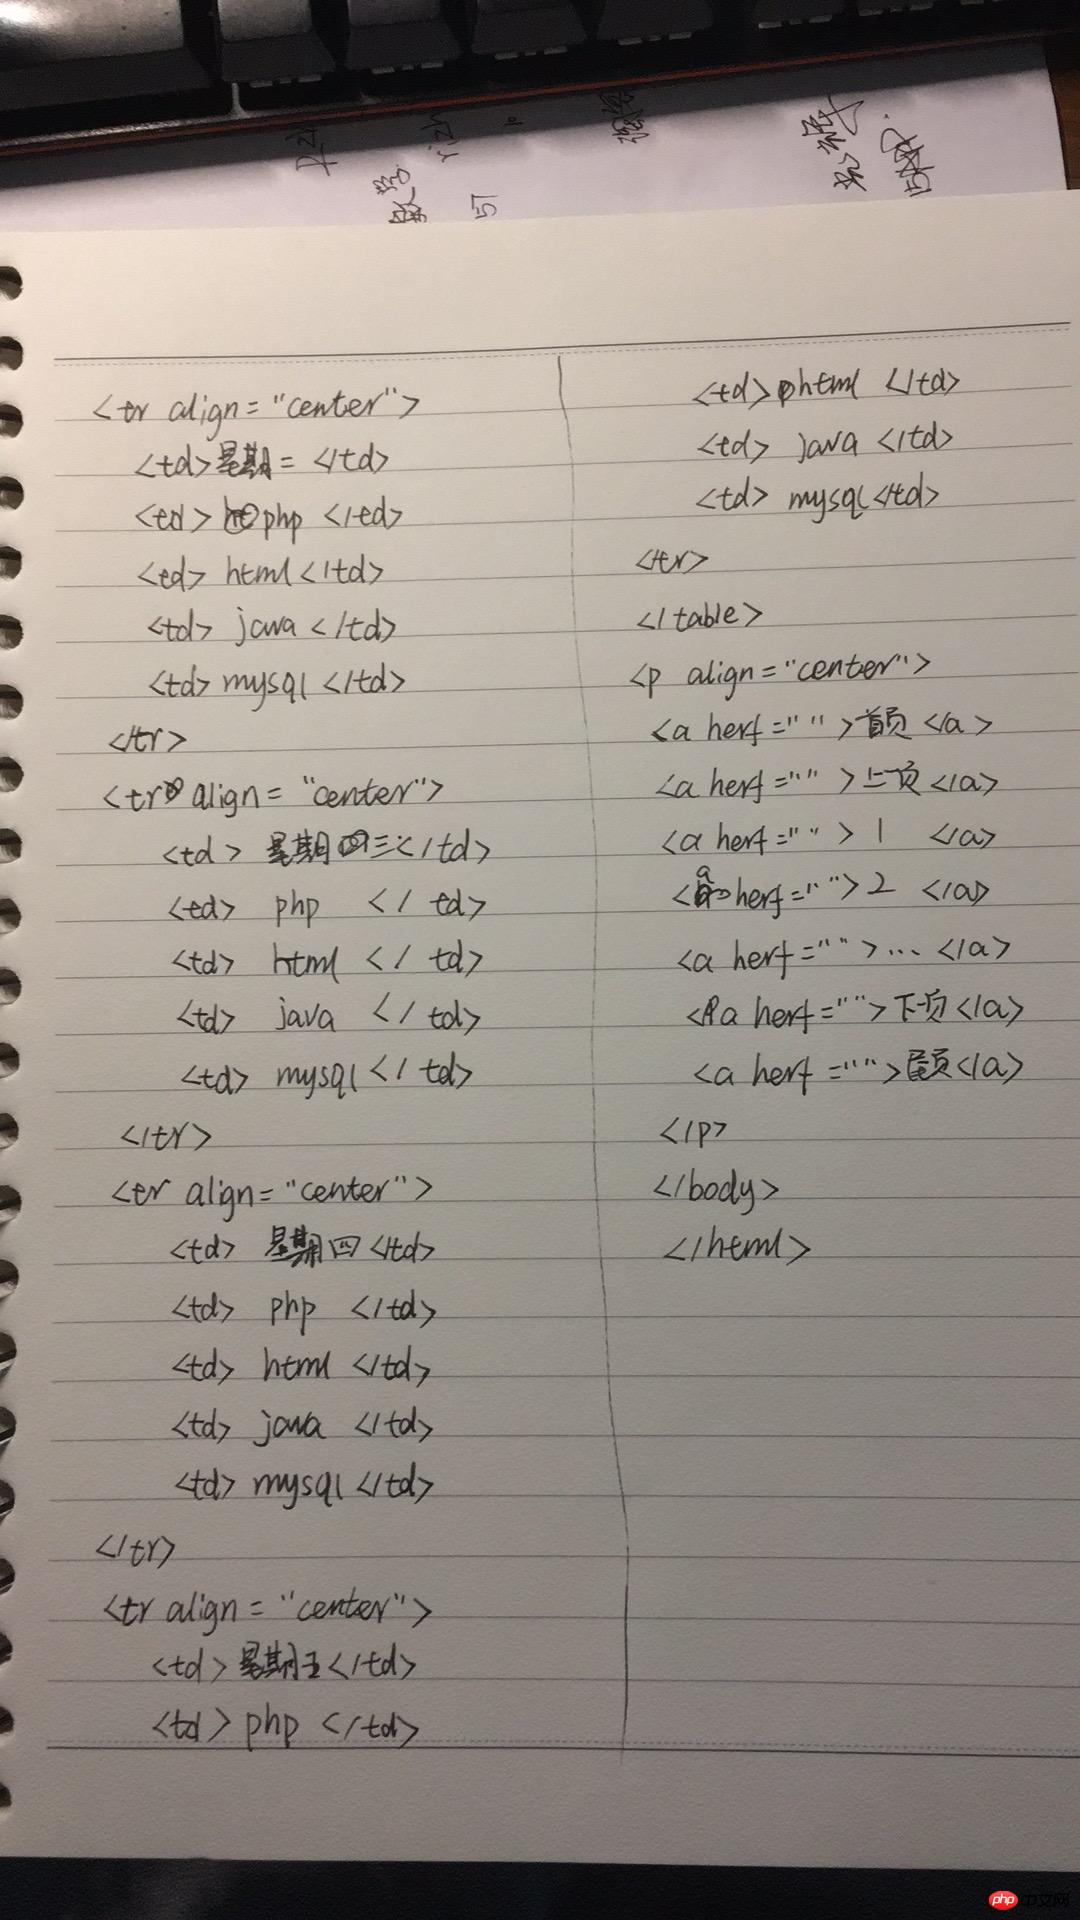 <tr align="center">
<td>星期二</td>
<td>php</td>
<td>html</td>
<td>java</td>
<td>mysql</td>
</tr>
<tr align="center">
<td>星期三</td>
<td>php</td>
<td>html</td>
<td>java</td>
<td>mysql</td>
</tr>
<tr align="center">
<td>星期四</td>
<td>php</td>
<td>html</td>
<td>java</td>
<td>mysql</td>
</tr>
<tr align="center">
<td>星期五</td>
<td>php</td>
<td>html</td>
<td>java</td>
<td>mysql</td>
<tr>
</table>
<p align="center">
<a herf="">首页</a>
<a herf="">上一页</a>
<a herf="">1</a>
<a herf="">2</a>
<a herf="">...</a>
<a herf="">下一页</a>
<a herf="">尾页</a>
</p>
</body>
</html>
php中文网